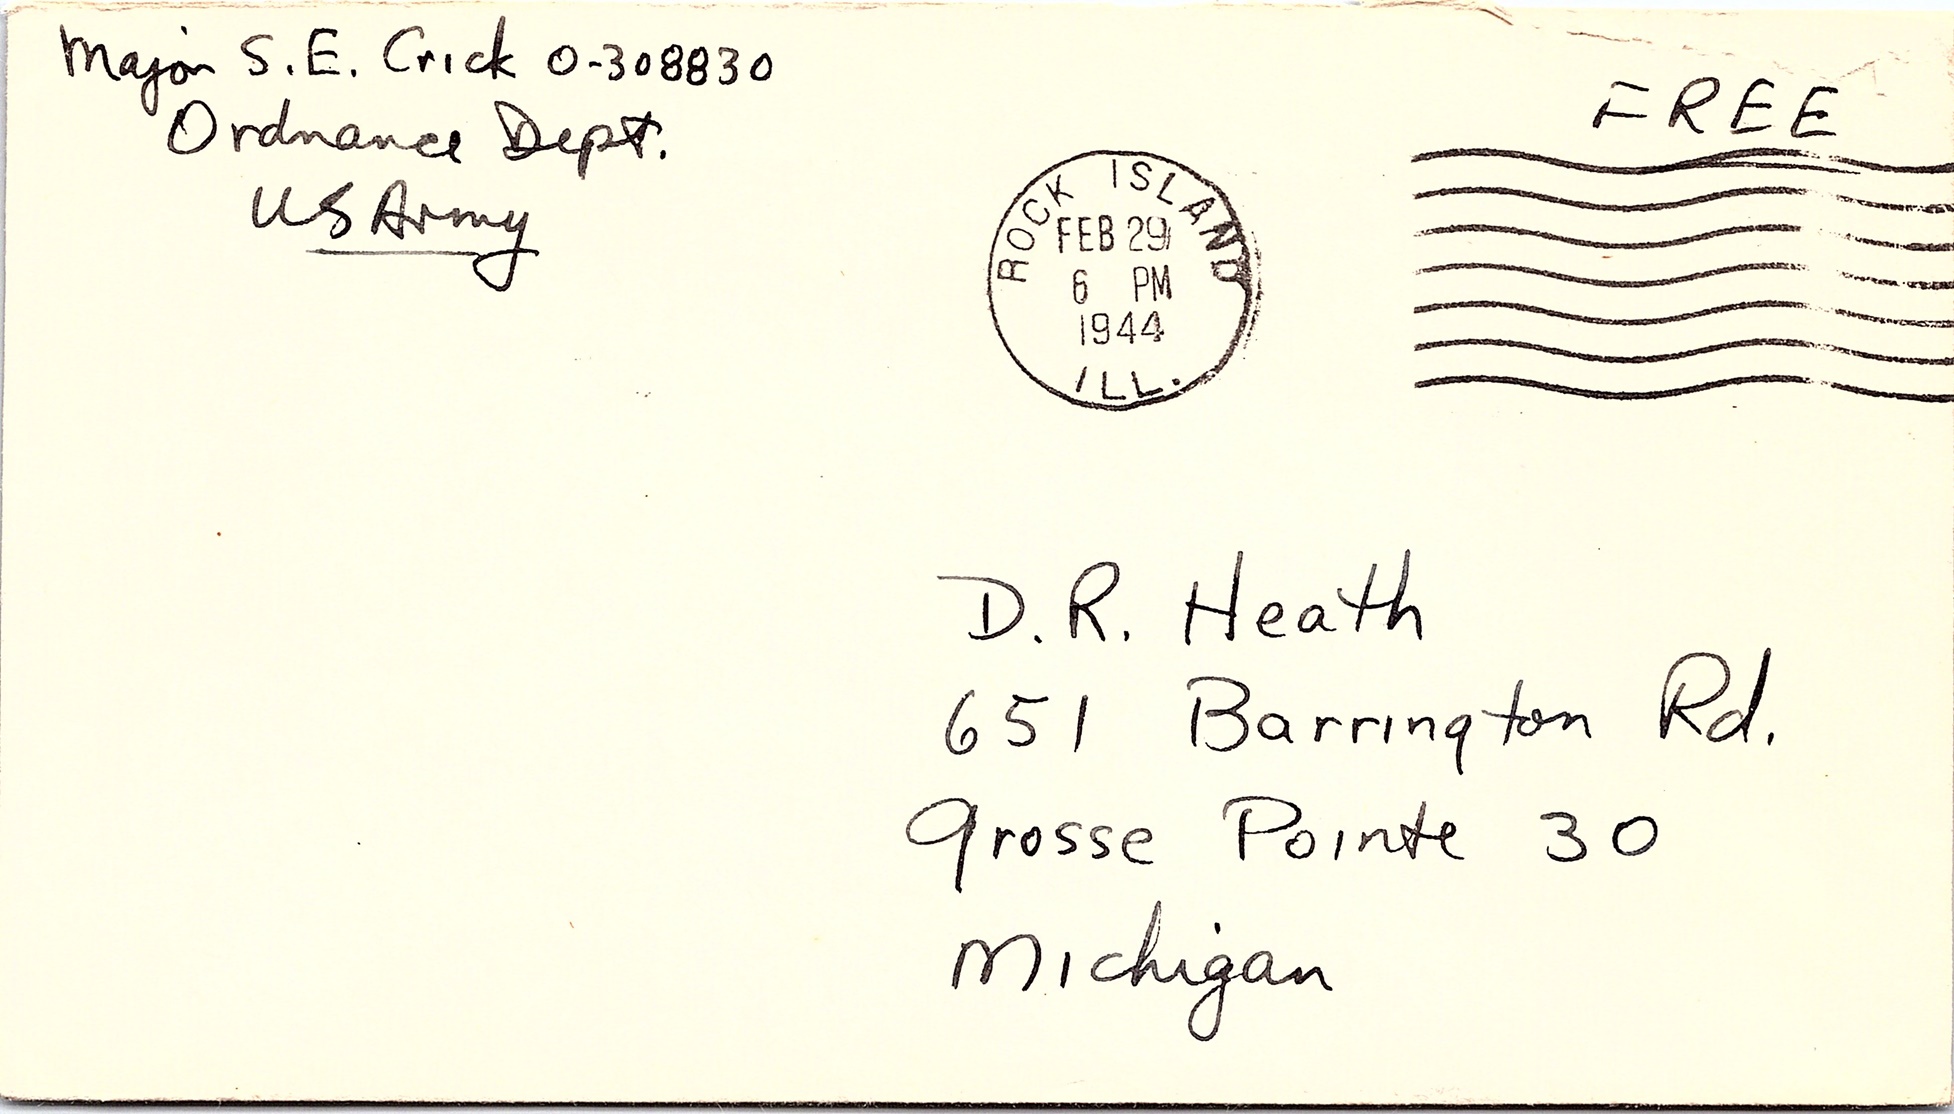 Major S.E. Crick O-308830
Ordnance Dept.
US Army
FREE
ROCK ISLAND
FEB 29
6 PM
1944
ILL.
D.R. Heath
651 Barrington Rd.
Grosse Pointe 30
Michigan